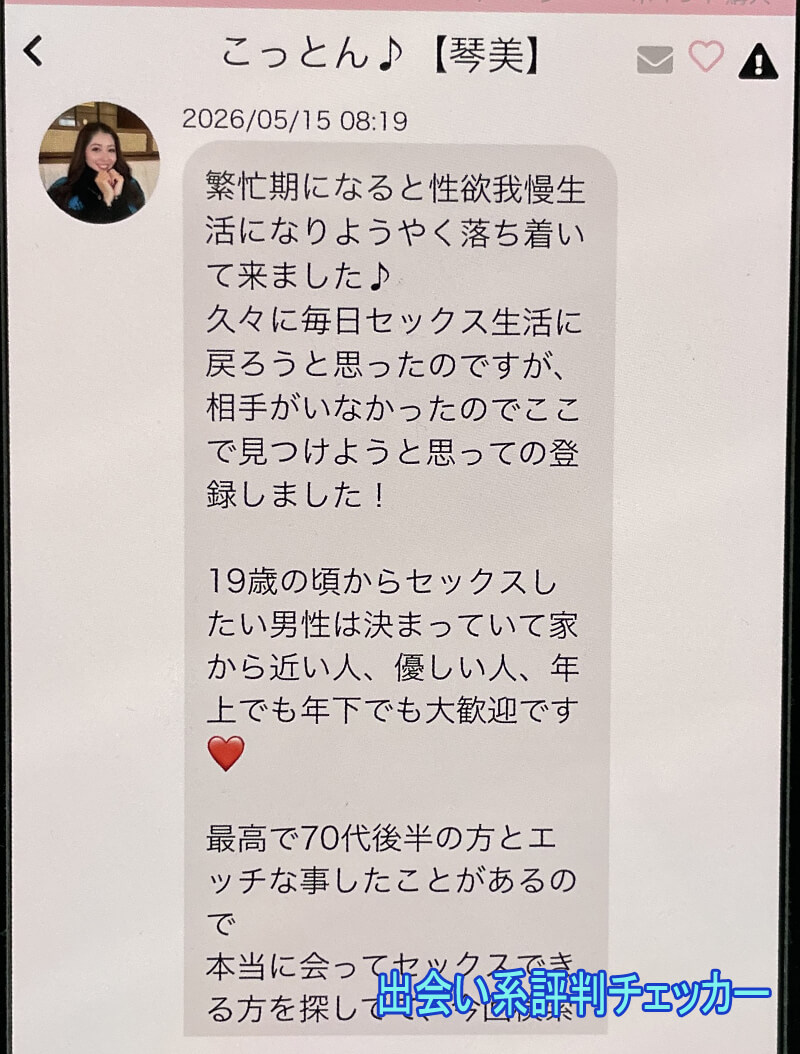 こっとん♪【琴美】
2026/05/15 08:19
繁忙期になると性欲我慢生
活になりようやく落ち着い
て来ました♪
久々に毎日セックス生活に
戻ろうと思ったのですが、
相手がいなかったのでここ
で見つけようと思っての登
録しました！
19歳の頃からセックスし
たい男性は決まっていて家
から近い人、優しい人、年
上でも年下でも大歓迎です
❤️
最高で70代後半の方とエ
ッチな事したことがあるの
で
本当に会ってセックスでき
る方を探して
出会い系評判チェッカー